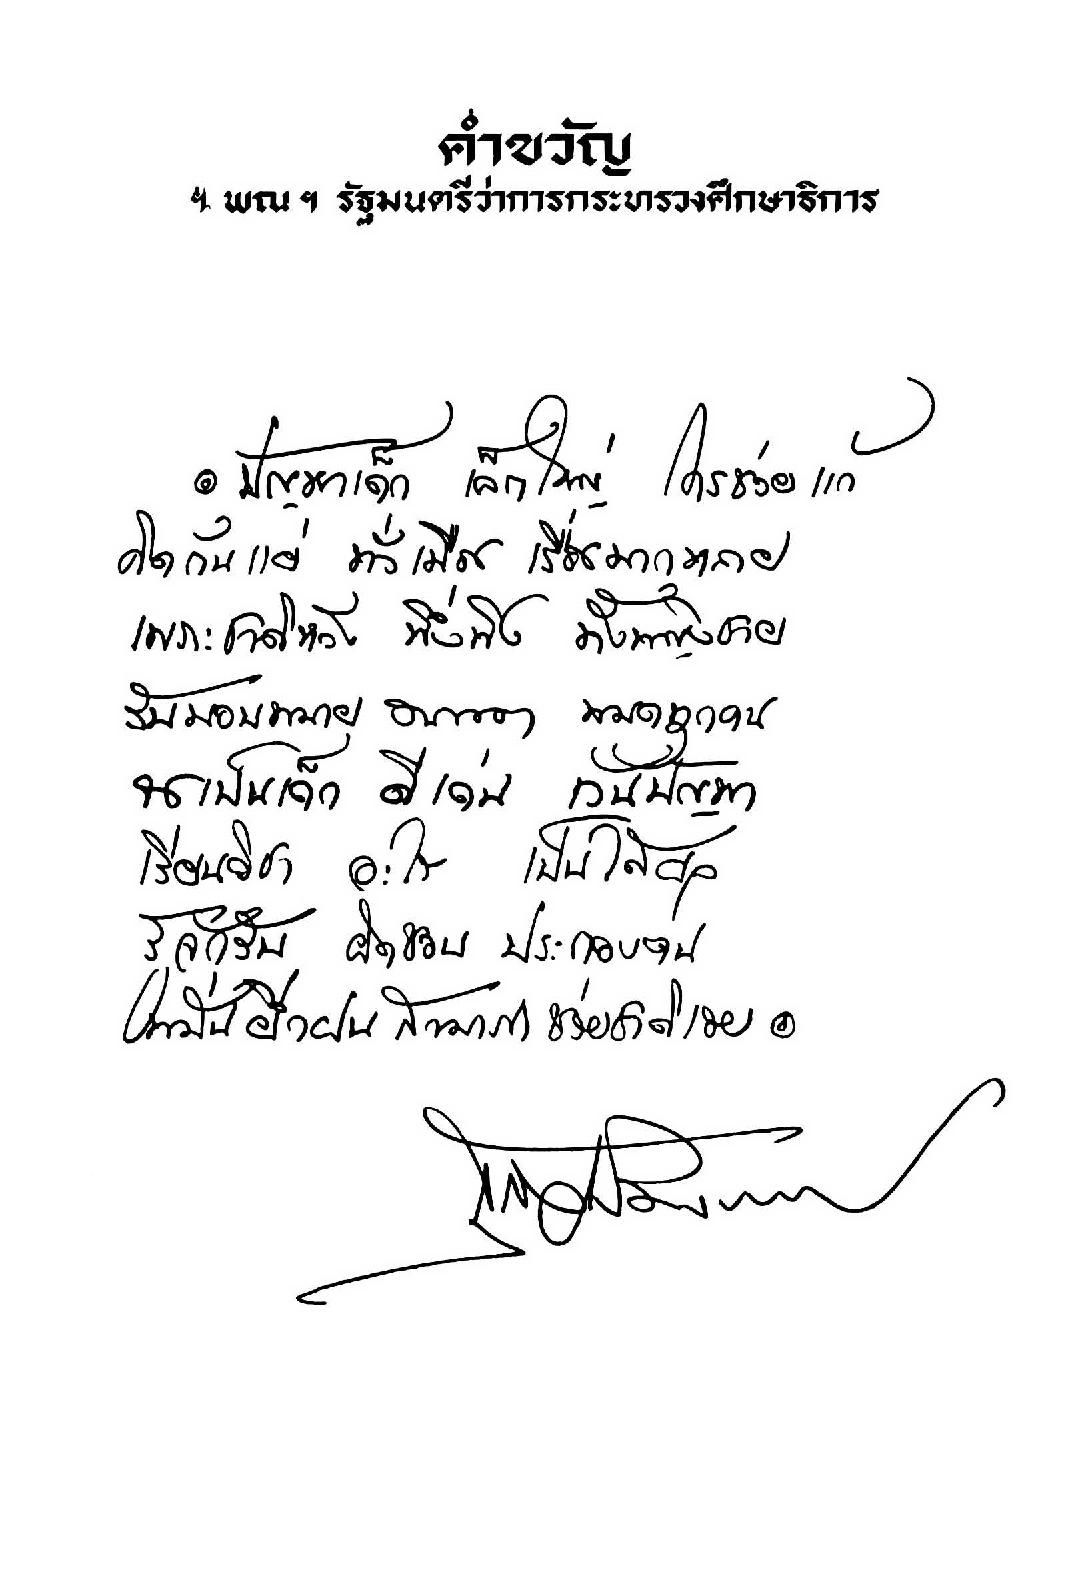 คำขวัญ
ฯ พณ ฯ รัฐมนตรีว่าการกระทรวงศึกษาธิการ
๏ ปัญหาเด็ก เล็กใหญ่ ใครช่วยแก้
คิดกันแย่ ทั่วเมือง เรื่องมากหลาย
เพราะชาติหวัง พึ่งพิง ทั้งหญิงชาย
รับมอบหมาย อนาคต หมดทุกคน
เป็นเด็ก ดีเด่น เว้นปัญหา
เรียนวิชา อะไร เป็นได้ผล
รู้จักรับ ผิดชอบ ประกอบตน
ให้มั่นฝึกฝน สามารถ ช่วยชาติเอย ๏